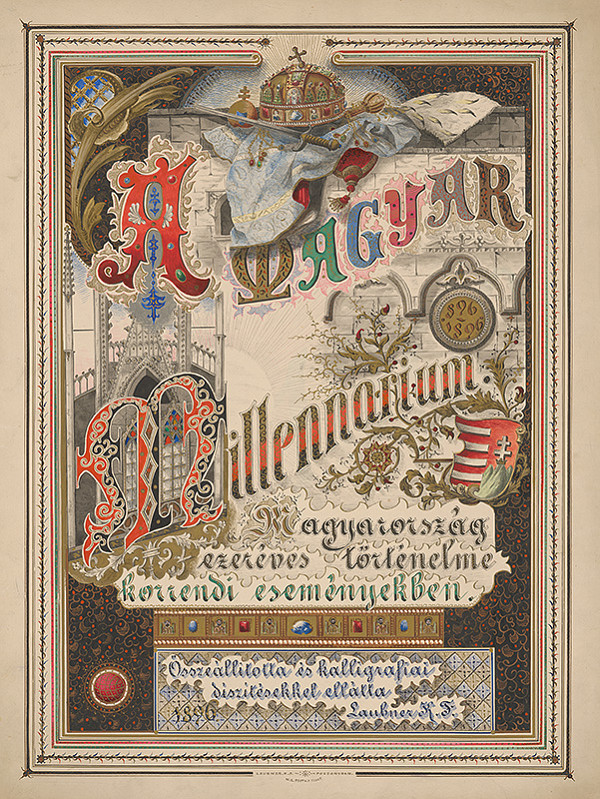 A
MAGYAR
896
1896
Millennarium.
Magyarország
ezeréves történelme
korrendi eseményekben.
Összeállította és kalligrafiai
díszítésekkel ellátta
1896 Laubner K. F.